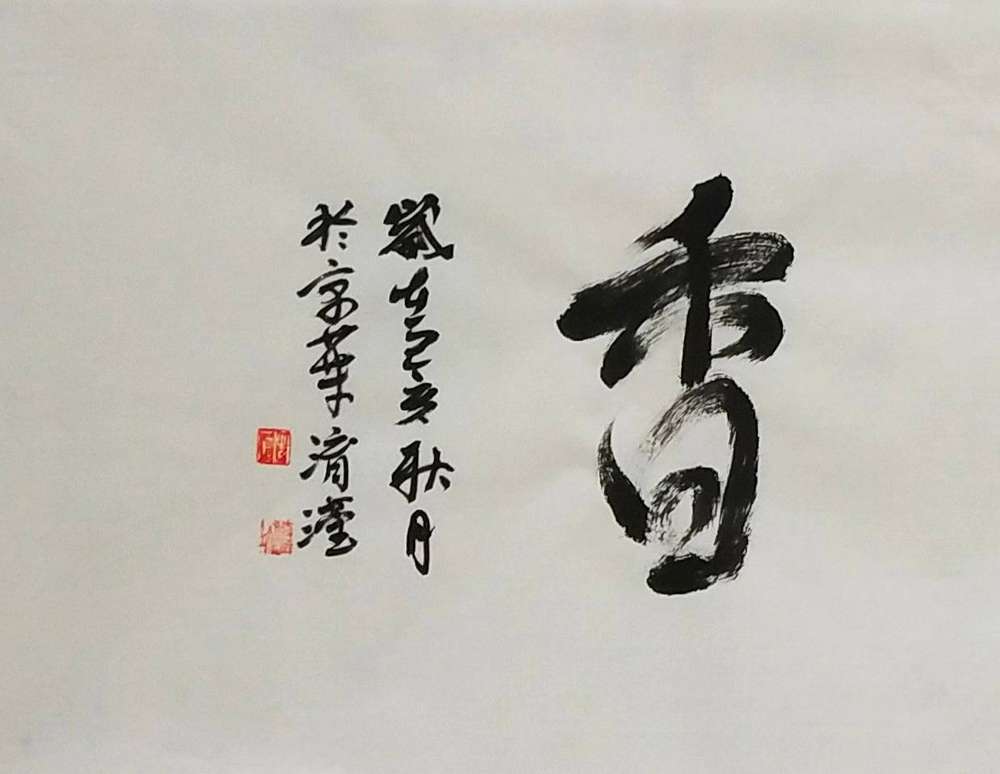 香
歲在己亥秋月
於京華